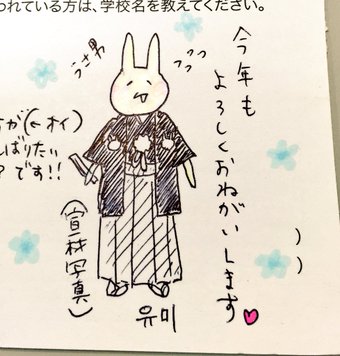 われている方は、学校名を教えてください。
今年も
よろしくおねがいします
フッフッフッ
うさ男
が(←オイ)
ばりたい
です!!
(宣材写真)
유미